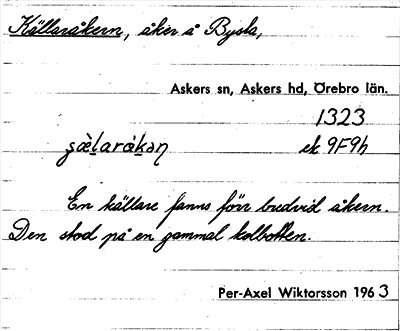 Källaråkern, åker å Bysta,
Askers sn, Askers hd, Örebro län.
1323
ʒæ̀laråkəɳ ek 9F9h
En källare fanns förr bredvid åkern.
Den stod på en gammal kolbotten.
Per-Axel Wiktorsson 1963